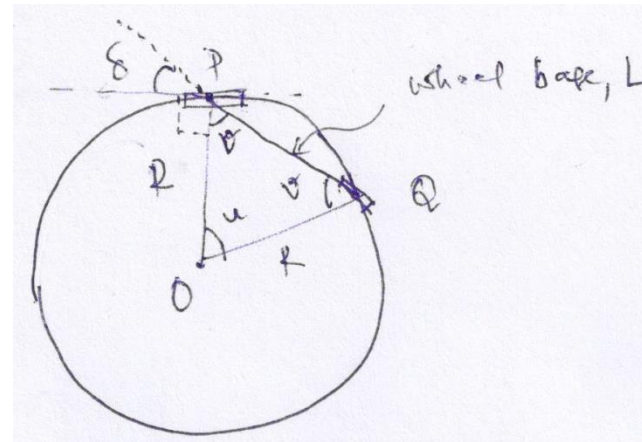 δ P
wheel base, L
v
R
v Q
u
R
O